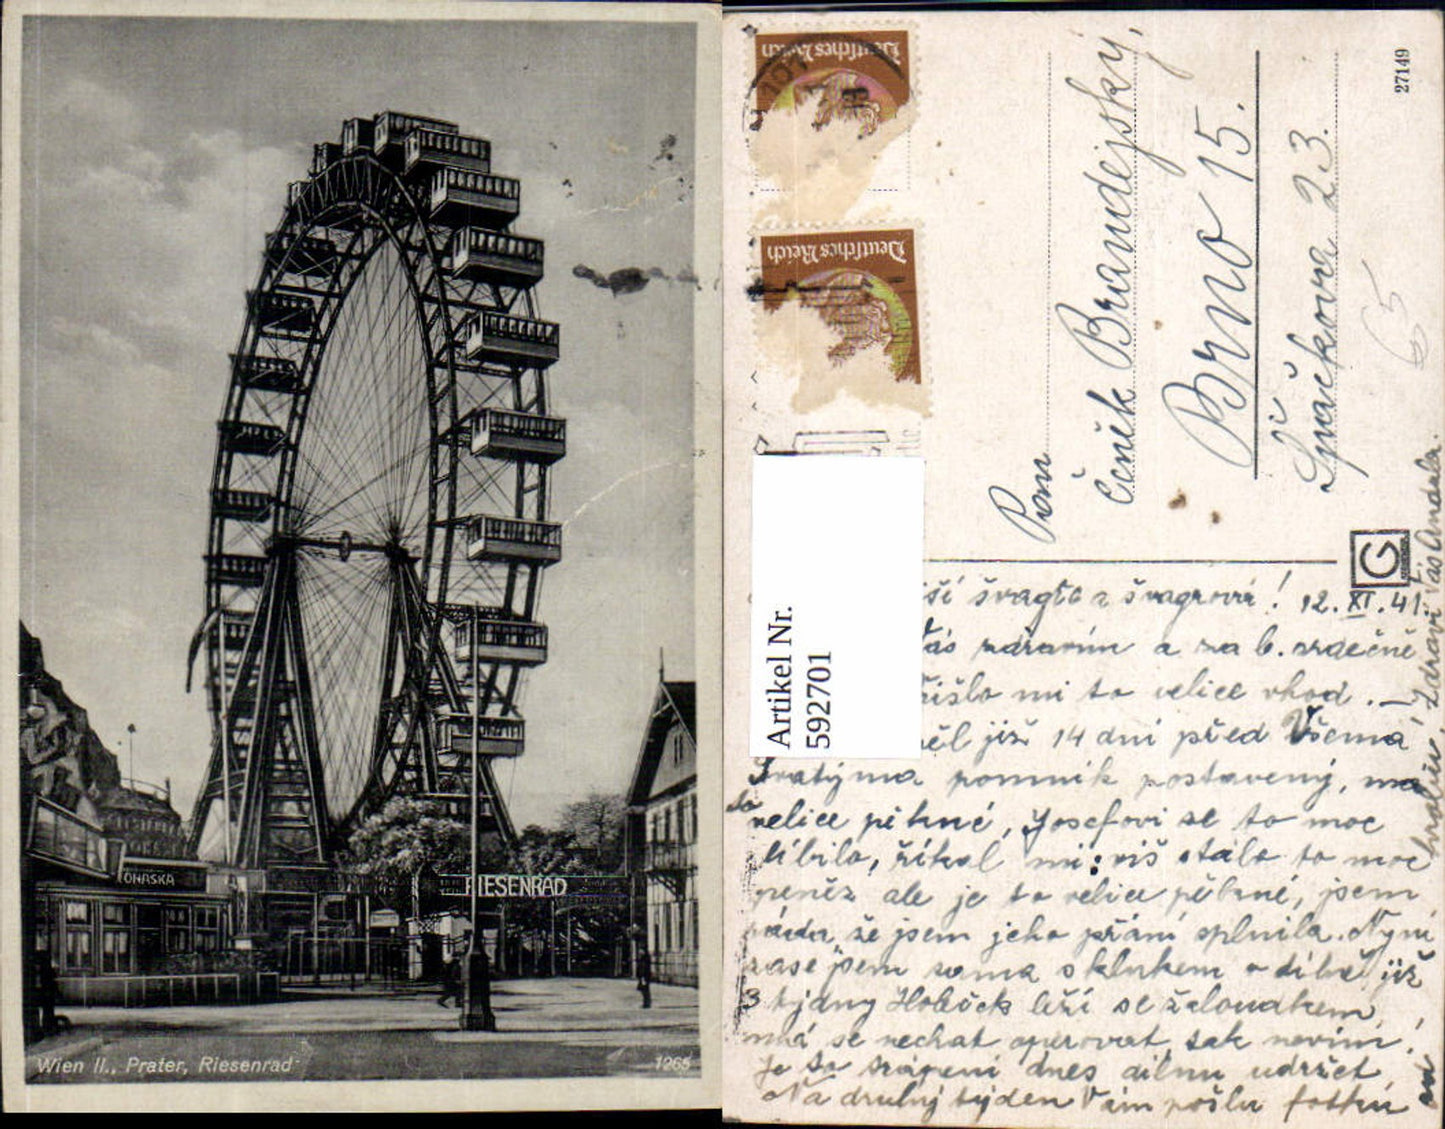 KONASKA
RIESENRAD
Wien II., Prater, Riesenrad
1265
Deutsches Reich
Deutsches Reich
27149
Pan
Čeněk Brandejský,
Brno 15.
Špačkova 23.
65
G
Artikel Nr.
592701
švagře a švagrová! 12. XI. 41.
Vás zdravím a za b. srdečně
přišlo mi to velice vhod. –
měl již 14 dní před Všema
Svatýma pomník postavený, má
velice pěkné, Josefovi se to moc
líbilo, říkal mi: víš stálo to moc
peněz ale je to velice pěkné, jsem
ráda, že jsem jeho přání splnila. Nyní
zase jsem sama s klukem v dílně již
3 týdny Holeček leží se žaloudkem,
má se nechat operovat tak nevím!
Je to trápení dnes dílnu udržet
Na druhý týden Vám pošlu fotku
Zdraví Vás Andula.